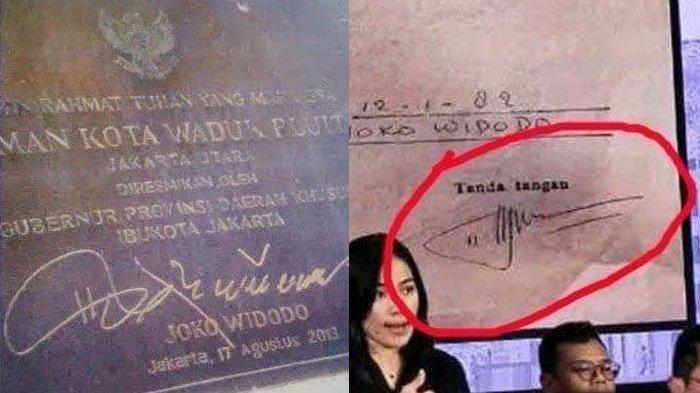 RAHMAT TUHAN YANG MAHA ESA
MAN KOTA WADUK PLUIT
JAKARTA UTARA
DIRESMIKAN OLEH
GUBERNUR PROVINSI DAERAH KHUSUS
IBUKOTA JAKARTA
JOKO WIDODO
Jakarta, 17 Agustus 2013
12-1-82
JOKO WIDODO
Tanda tangan